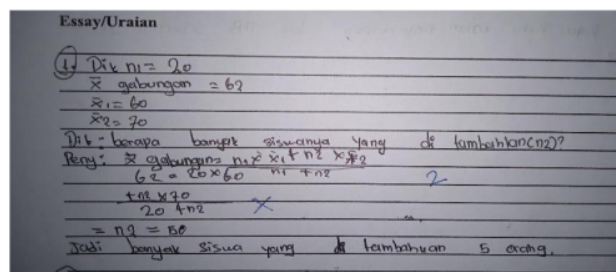 Essay/Uraian
1. Dik n1 = 20
x̄ gabungan = 62
x̄1 = 60
x̄2 = 70
Dit = berapa banyak siswanya yang di tambahkan(n2)?
Peny: x̄ gabungan = n1 x x̄1 + n2 x x̄2
n1 + n2
62 = 20 x 60
2
+ n2 x 70
20 + n2 X
= n2 = 50
Jadi banyak siswa yang di tambahkan 5 orang.